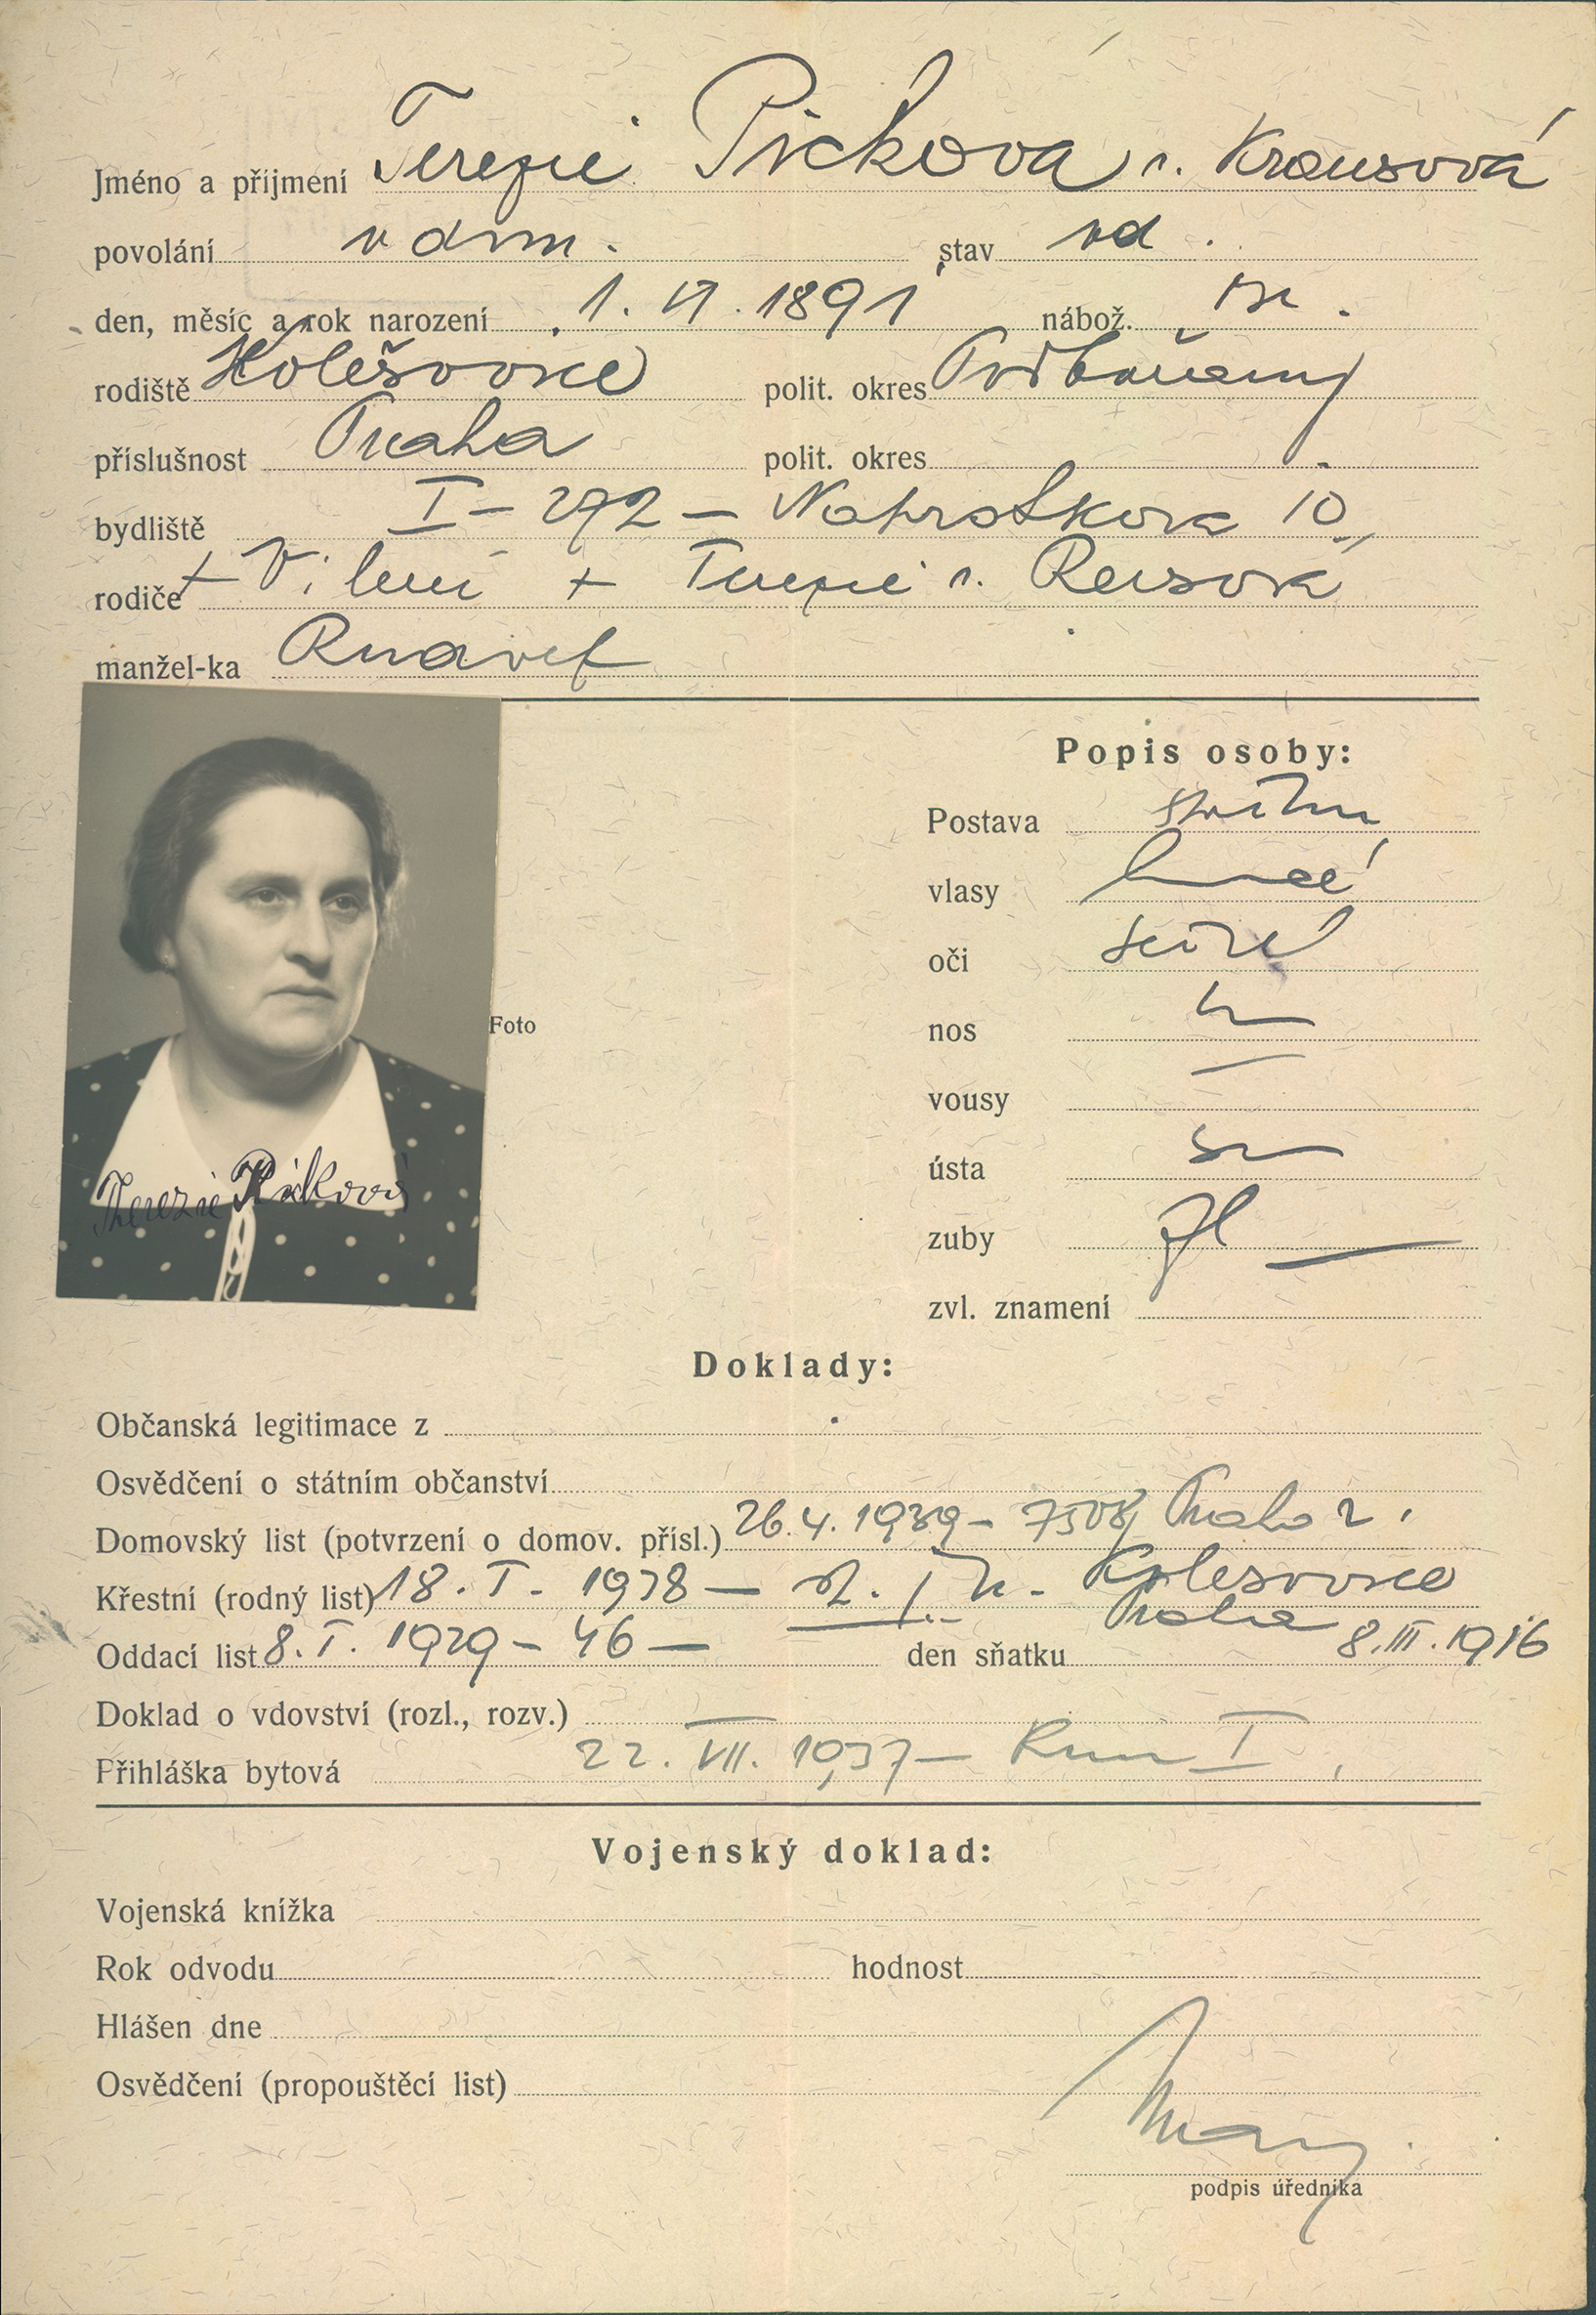 Jméno a příjmení Terezie Picková r. Krausová
povolání v dom. stav vd.
den, měsíc a rok narození 1. VI. 1891 nábož. isr.
rodiště Kolešovice polit. okres Podbořany
příslušnost Praha polit. okres
bydliště I – 272 – Náprstkova 10
rodiče + Vilém + Terezie r. Reisová
manžel-ka
Foto
Therezie Picková
Popis osoby:
Postava střední
vlasy hnědé
oči šedé
nos
vousy —
ústa
zuby
zvl. znamení
Doklady:
Občanská legitimace z
Osvědčení o státním občanství
Domovský list (potvrzení o domov. přísl.) 26.4. 1939 – Praha
Křestní (rodný list) 18. I. 1938 – Kolešovice
Oddací list 8. I. 1929 – 46 – den sňatku Praha 8. III. 1916
Doklad o vdovství (rozl., rozv.)
Přihláška bytová 22. VII. 1937 – I
Vojenský doklad:
Vojenská knížka
Rok odvodu hodnost
Hlášen dne
Osvědčení (propouštěcí list)
podpis úředníka